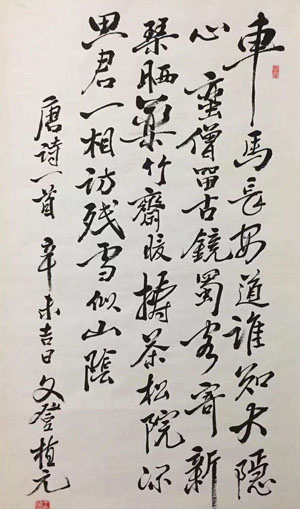 車馬長安道誰知大隱
心蛮僧留古鏡蜀客寄新
琴晒藥竹齋暖擣茶松院深
思君一相訪殘雪似山陰
唐詩一首 辛未吉日 文登植元